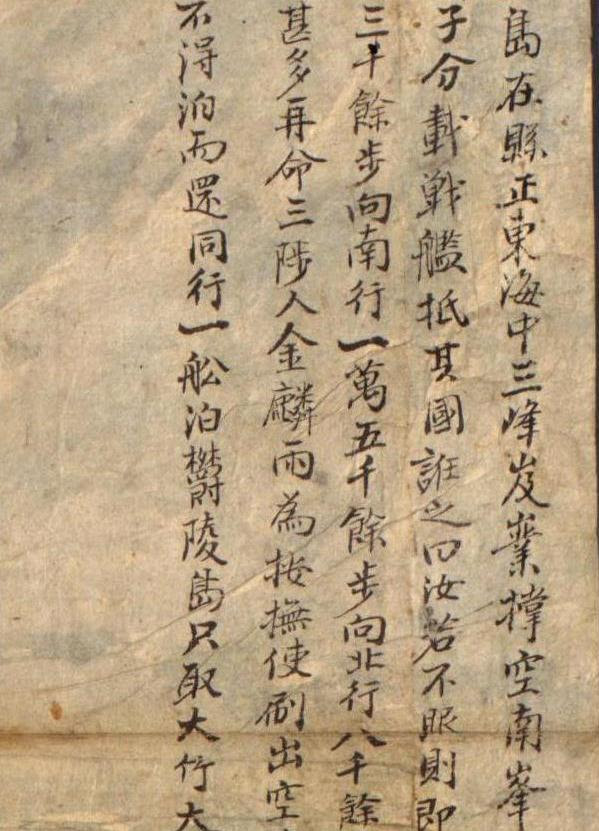 島在縣正東海中三峰岌嶪撑空南峯
子分載戰艦抵其國誑之曰汝若不服則即
三千餘步向南行一萬五千餘步向北行八千餘
甚多再命三陟人金麟雨為按撫使刷出空
不得泊而還同行一船泊欝陵島只取大竹大